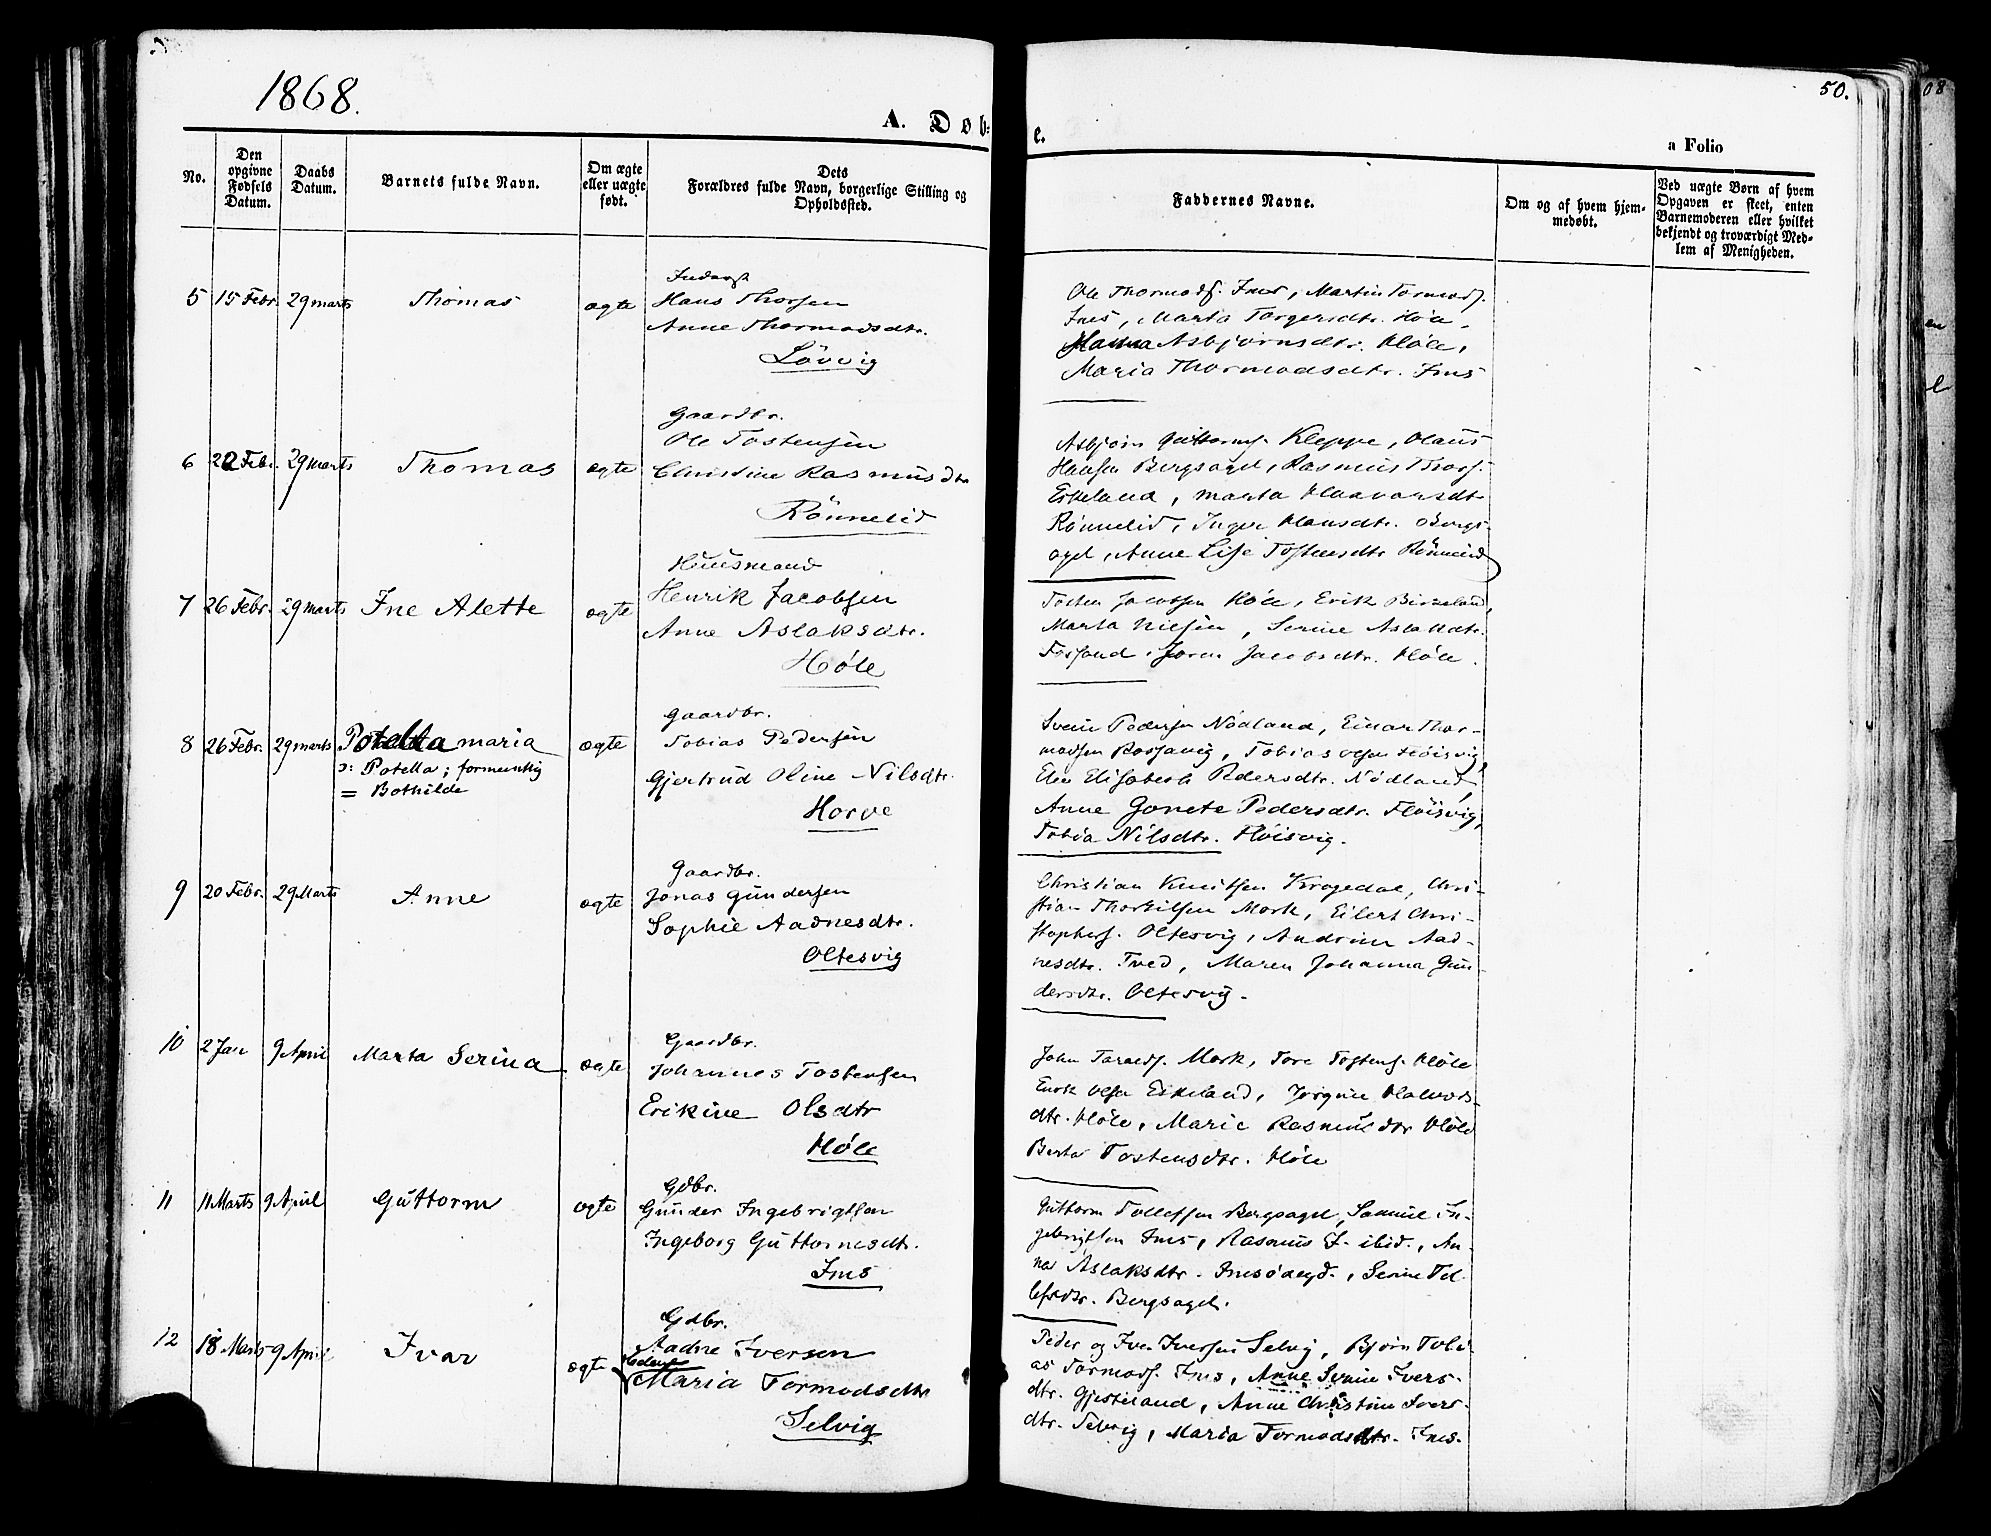 1868.
50.
A. Døb=
e.
a Folio
No.
Den opgivne Fødsels Datum.
Daabs Datum.
Barnets fulde Navn.
Om ægte eller uægte født.
Dets
Forældres fulde Navn, borgerlige Stilling og
Opholdssted.
Faddernes Navne.
Om og af hvem hjem-
medøbt.
Ved uægte Børn af hvem
Opgaven er skeet, enten
Barnemoderen eller hvilket
bekjendt og troværdigt Med-
lem af Menigheden.
5 15 Febr. 29 marts Thomas ægte
Inderst
Hans Thorsen
Anne Thormodsdtr.
Lövvig
Ole Thormods. Ims, Martin Tormods.
Ims, Marta Torgersdtr. Høle,
Asbjörnsdtr. Høle,
Maria Thormodsdtr. Ims
6 22 Febr. 29 marts Thomas ægte
Gaardbr.
Ole Tostensen
Christine Rasmusdtr
Rönnelid
Asbjörn Guttorms. Kleppe, Olaus
Hansen Bergsagel, Rasmus Thors.
Eskeland, Marta Haavarsdtr
Rönnelid, Inger Hansdtr. Bergs-
agel, Anne Lise Tostensdtr Rönnelid
7 26 Febr. 29 marts Ine Alette ægte
Huusmand
Henrik Jacobsen
Anne Aslaksdtr.
Høle
Tosten Jacobsen Høle, Erik Birkeland,
Marta Nilsen, Serine Aslaksdtr.
Fossand, Joren Jacobsdtr. Høle.
8 26 Febr. 29 marts Potella maria ægte
ɔ: Potella; formentlig
= Bothilde
Gaardbr.
Tobias Pedersen
Gjertrud Oline Nilsdtr.
Horve
Svein Pedersen Nödland, Einar Thor-
modsen Rossavig, Tobias Olsen Höisvig,
Elen Elisabeth Pedersdtr. Nödland,
Anne Gonete Pedersdtr. Flöisvig,
Tobia Nilsdtr. Flöisvig.
9 20 Febr. 29 Marts Anne ægte
Gaardbr.
Jonas Gundersen
Sophie Aadnesdtr.
Oltesvig
Christian Knutsen Kragedal, Chri-
stian Thorkilsen Mork, Eilert Chri-
stophers. Oltesvig, Andrine Aad-
nesdtr. Tved, Maren Johanna Gun-
dersdtr. Oltesvig.
10 2 Jan 9 April Marta Serina ægte
Gaardbr.
Johannes Tostensen
Erikine Olsdtr
Høle
John Mork, Tore Tostens. Høle
Enok Olsen Eskeland, Jörgine Halvors-
dtr. Høle, Marie Rasmusdtr Høle
Berta Tostensdtr. Høle
11 11 Marts 9 April Guttorm ægte
Gdbr.
Gunder Ingebrigtsen
Ingeborg Guttormsdtr.
Ims
Guttorm Tollefsen Bergsagel, Samuel In-
gebrigtsen Ims, Rasmus ibid., An-
na Aslaksdtr. Imsödegd., Serine Tol-
lefsdtr. Bergsagel.
12 18 Marts 9 April Ivar ægte
Gdbr.
Aadne Iversen
Maria Tormodsdtr
Selvig
Peder og Iver Iversen Selvig, Björn Tobi-
as Tormods. Ims, Anne Serine Ivers-
dtr. Gjesteland, Anne Christine Ivers-
dtr. Selvig, Maria Tormodsdtr. Ims.